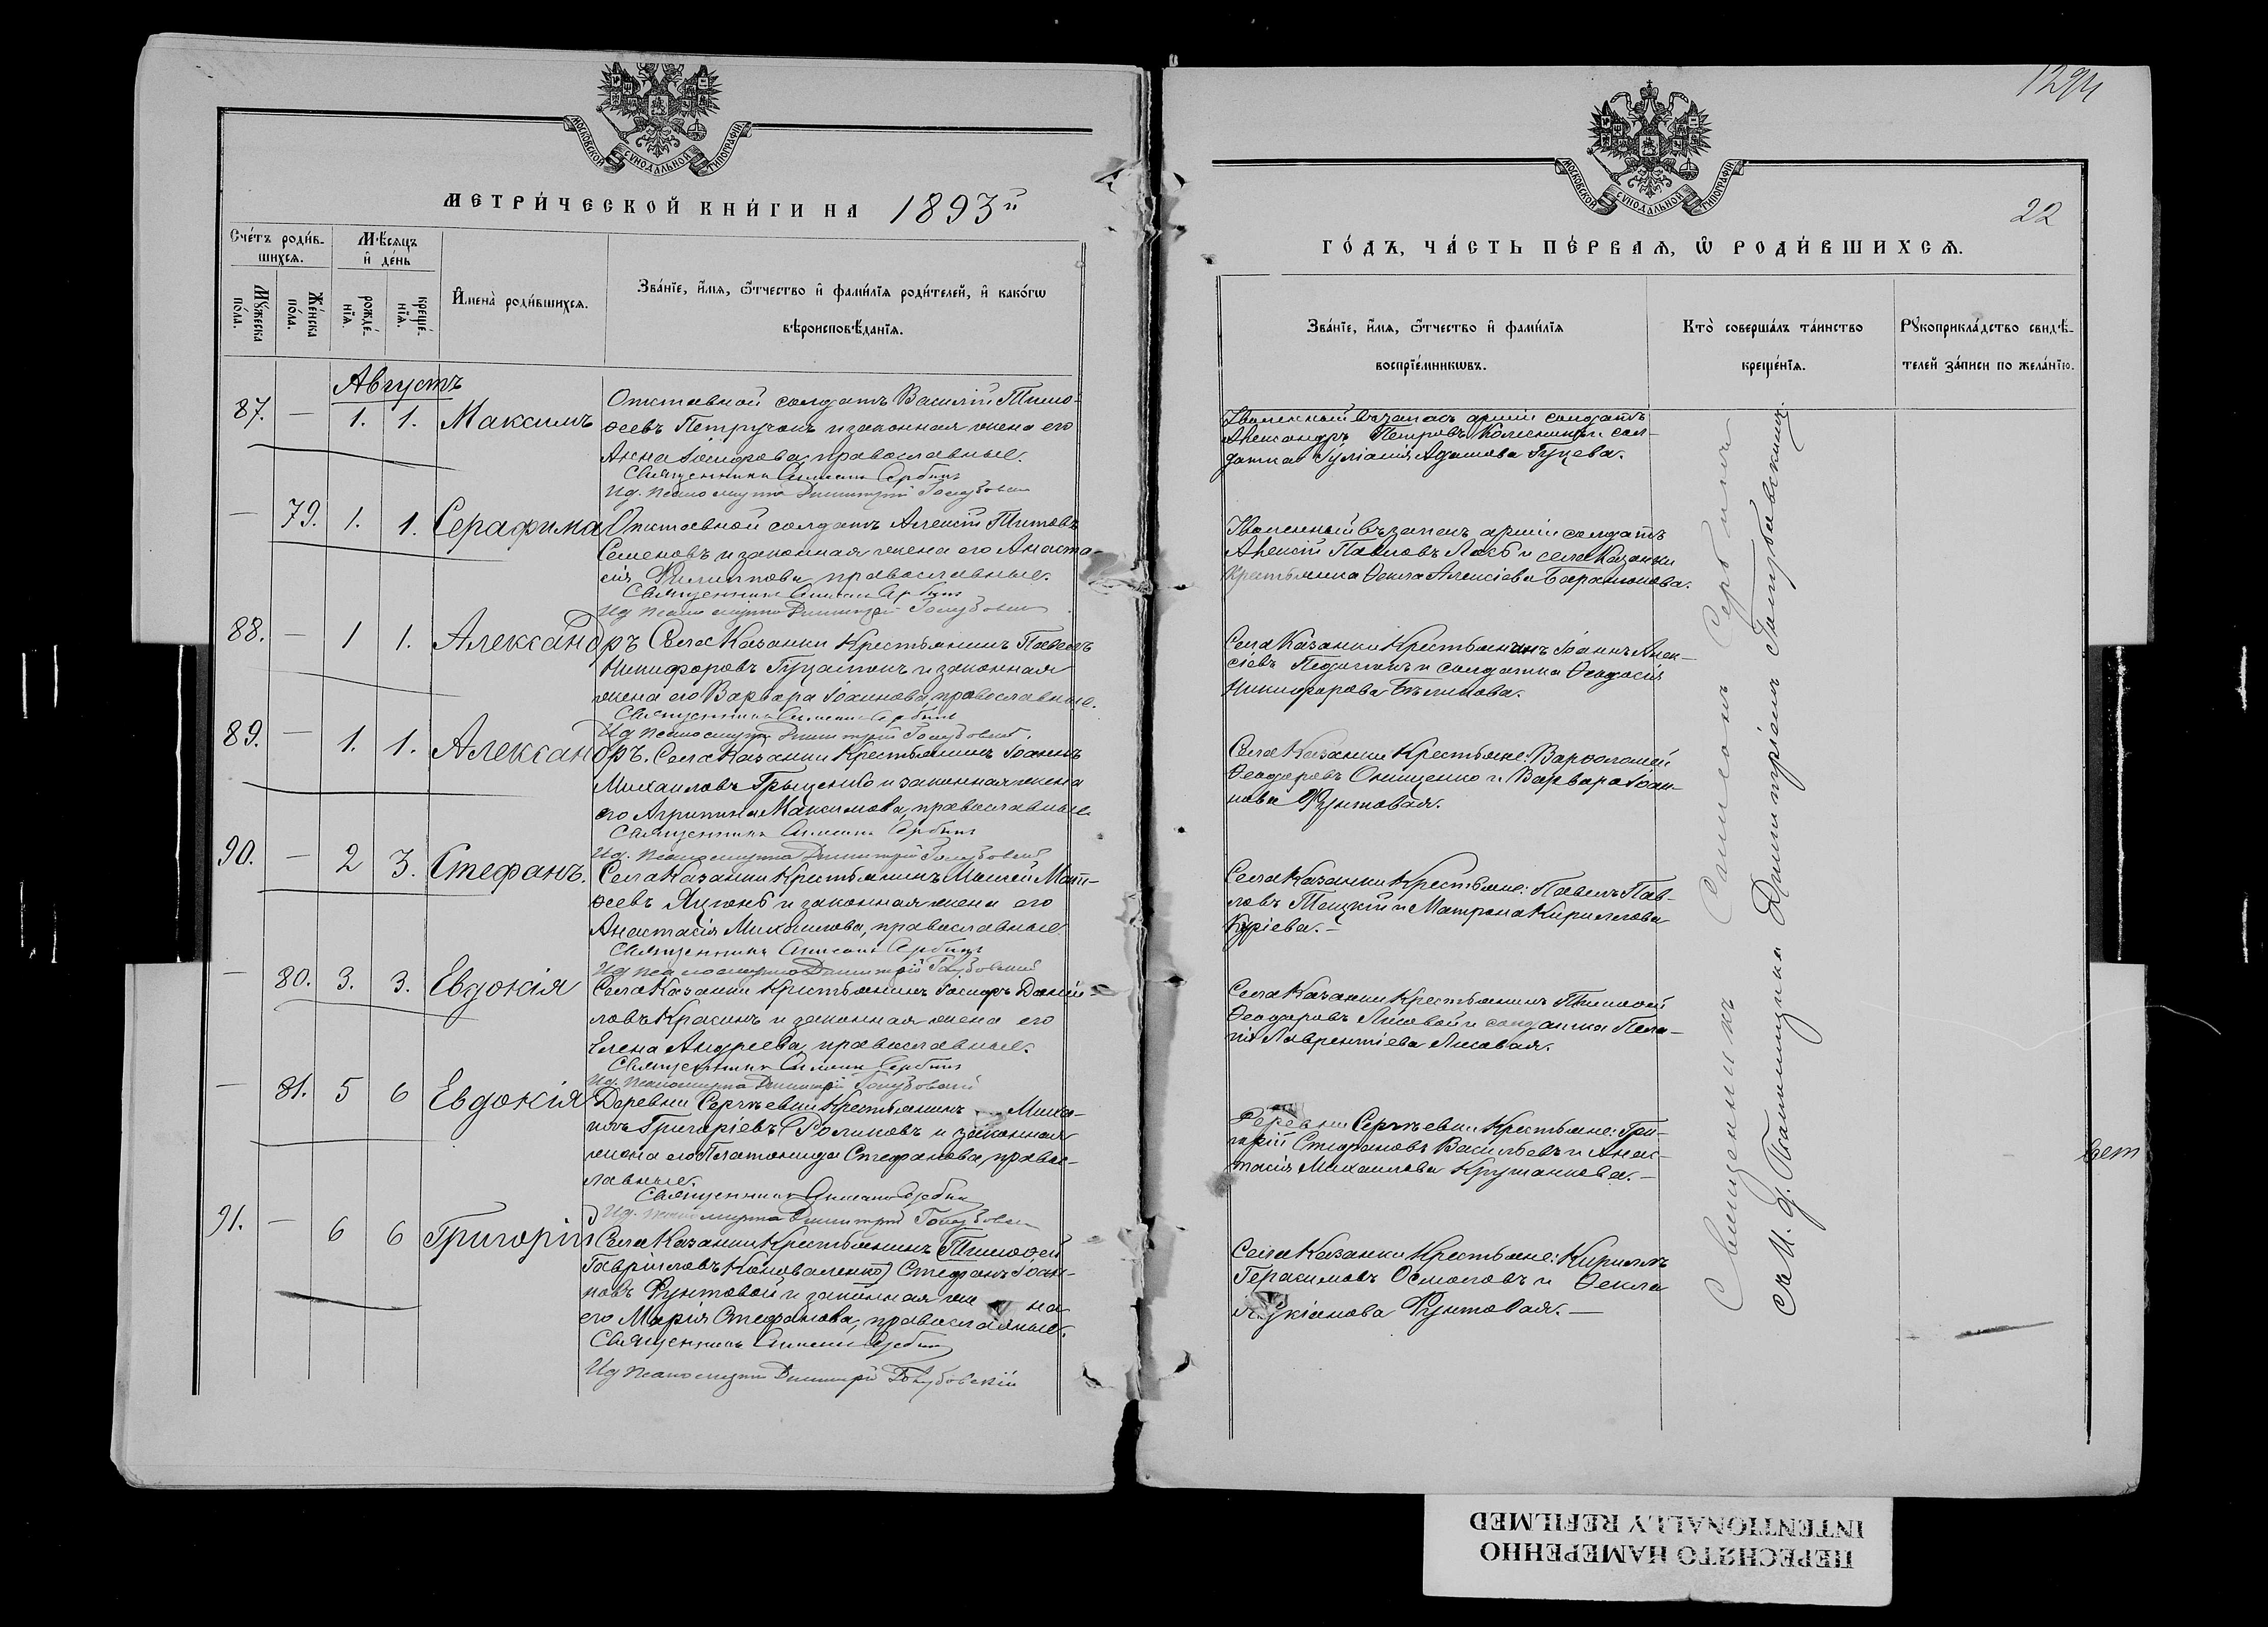 МОСКОВСКОЙ СѴНОДАЛЬНОЙ ТИПОГРАФІИ
МЕТРИ́ЧЕСКОЙ КНИ́ГИ НА 1893й
Сче́тъ роди́вшихсѧ.
Мꙋ́жеска по́ла.
Же́нска по́ла.
Мѣ́сѧцъ и҆ де́нь
рожде́нїѧ.
креще́нїѧ.
И҆мена̀ роди́вшихсѧ.
Зва́нїе, и҆́мѧ, ѻ҆́тчество и҆ фами́лїѧ роди́телей, и҆ како́гѡ
вѣроисповѣ́данїѧ.
Августъ
87. — 1. 1. Максимъ
Отставной солдатъ Василій Тимо-
ѳеевъ Петручокъ и законная жена его
Анна Іосифова, православные.
Священникъ Симеонъ Сербинъ
Ид. псаломщика Димитрій Голубовскій
— 79. 1. 1. Серафима
Отставной солдатъ Алексій Титовъ
Семеновъ и законная жена его Анаста-
сія Филиппова, православные.
Священникъ Симеонъ Сербинъ
Ид псаломщика Димитрій Голубовскій
88. — 1 1. Александръ
Села Казанки Крестьянинъ Павелъ
Никифоровъ и законная
жена его Варвара Іоаннова, православные.
Священникъ Симеонъ Сербинъ
Ид псаломщика Димитрій Голубовскій.
89. — 1. 1. Александръ.
Села Казанки Крестьянинъ Іоаннъ
Михаиловъ Грыценко и законная жена
его Агрипина Максимова, православные
Священникъ Симеонъ Сербинъ
Ид. псаломщика Димитрій Голубовскій
90. — 2 3. Стефанъ.
Села Казанки Крестьянинъ Моисей Мат-
ѳеевъ и законная жена его
Анастасія Михаилова, православные
Священникъ Симеонъ Сербинъ
Ид псаломщика Димитрій Голубовскій
— 80. 3. 3. Евдокія
Села Казанки Крестьянинъ Іосифъ Даніи-
ловъ Красинъ и законная жена его
Елена Андреева, православные.
Священникъ Симеонъ Сербинъ
Ид. псаломщика Димитрій Голубовскій
— 81. 5 6 Евдокія
Деревни Сергѣевки Крестьянинъ
Григоріевъ и законная
жена его Платонида Стефанова, право-
лавные.
Священникъ Симеонъ Сербинъ
Ид. псаломщика Димитрій Голубовскій
91. — 6 6 Григорій
Села Казанки Крестьянинъ (Тимоѳей
Гавріиловъ Коноваленко) Стефанъ Іоан-
новъ Фунтовой и законная же на
его Марія Стефанова, православные.
Священникъ Симеонъ Сербинъ
Ид псаломщика Димитрій Голубовскій
1294
22
МОСКОВСКОЙ СѴНОДАЛЬНОЙ ТИПОГРАФІИ
ГО́ДЪ, ЧА́СТЬ ПЕ́РВАѦ, Ѽ РОДИ́ВШИХСѦ.
Зва́нїе, и҆́мѧ, ѻ҆́тчество и҆ фами́лїѧ
воспрїе́мникѡвъ.
Кто̀ соверша́лъ та́инство
креще́нїѧ.
Рꙋкоприкла́дство свидѣ́-
телей за́писи по жела́нїю.
Уволенный въ запасъ арміи солдатъ
Александръ Петровъ и сол-
датка Іуліанія Адамова Гуцева.
Уволенный въ запасъ арміи солдатъ
Алексій Павловъ и села Казанки
Крестьянка Ѳекла Алексіева
Села Казанки Крестьянинъ Іоаннъ Алек-
сіевъ и солдатка Ѳеодосія
Никифорова
Села Казанки Крестьяне: Варѳоломей
Ѳеодоровъ Онищенко и Варвара Іоан-
нова Фунтовая.
Села Казанки Крестьяне: Павелъ Пав-
ловъ и Матрона Кириллова
Села Казанки Крестьянинъ Тимоѳей
Ѳеодоровъ Лисовой и солдатка Пела-
гія Лаврентіева Лисовая.
Деревни Сергѣевки Крестьяне: Гри-
горій Стефановъ Васильевъ и Анас-
тасія Михаилова
Села Казанки Крестьяне: Кириллъ
Герасимовъ Осмоловъ и Ѳекла
Лукіанова Фунтовая. —
Священникъ Симеонъ Сербинъ
съ И. д. Псаломщика Димитріемъ Голубовскимъ.
ПЕРЕСНЯТО НАМЕРЕННО
INTENTIONALLY REFILMED